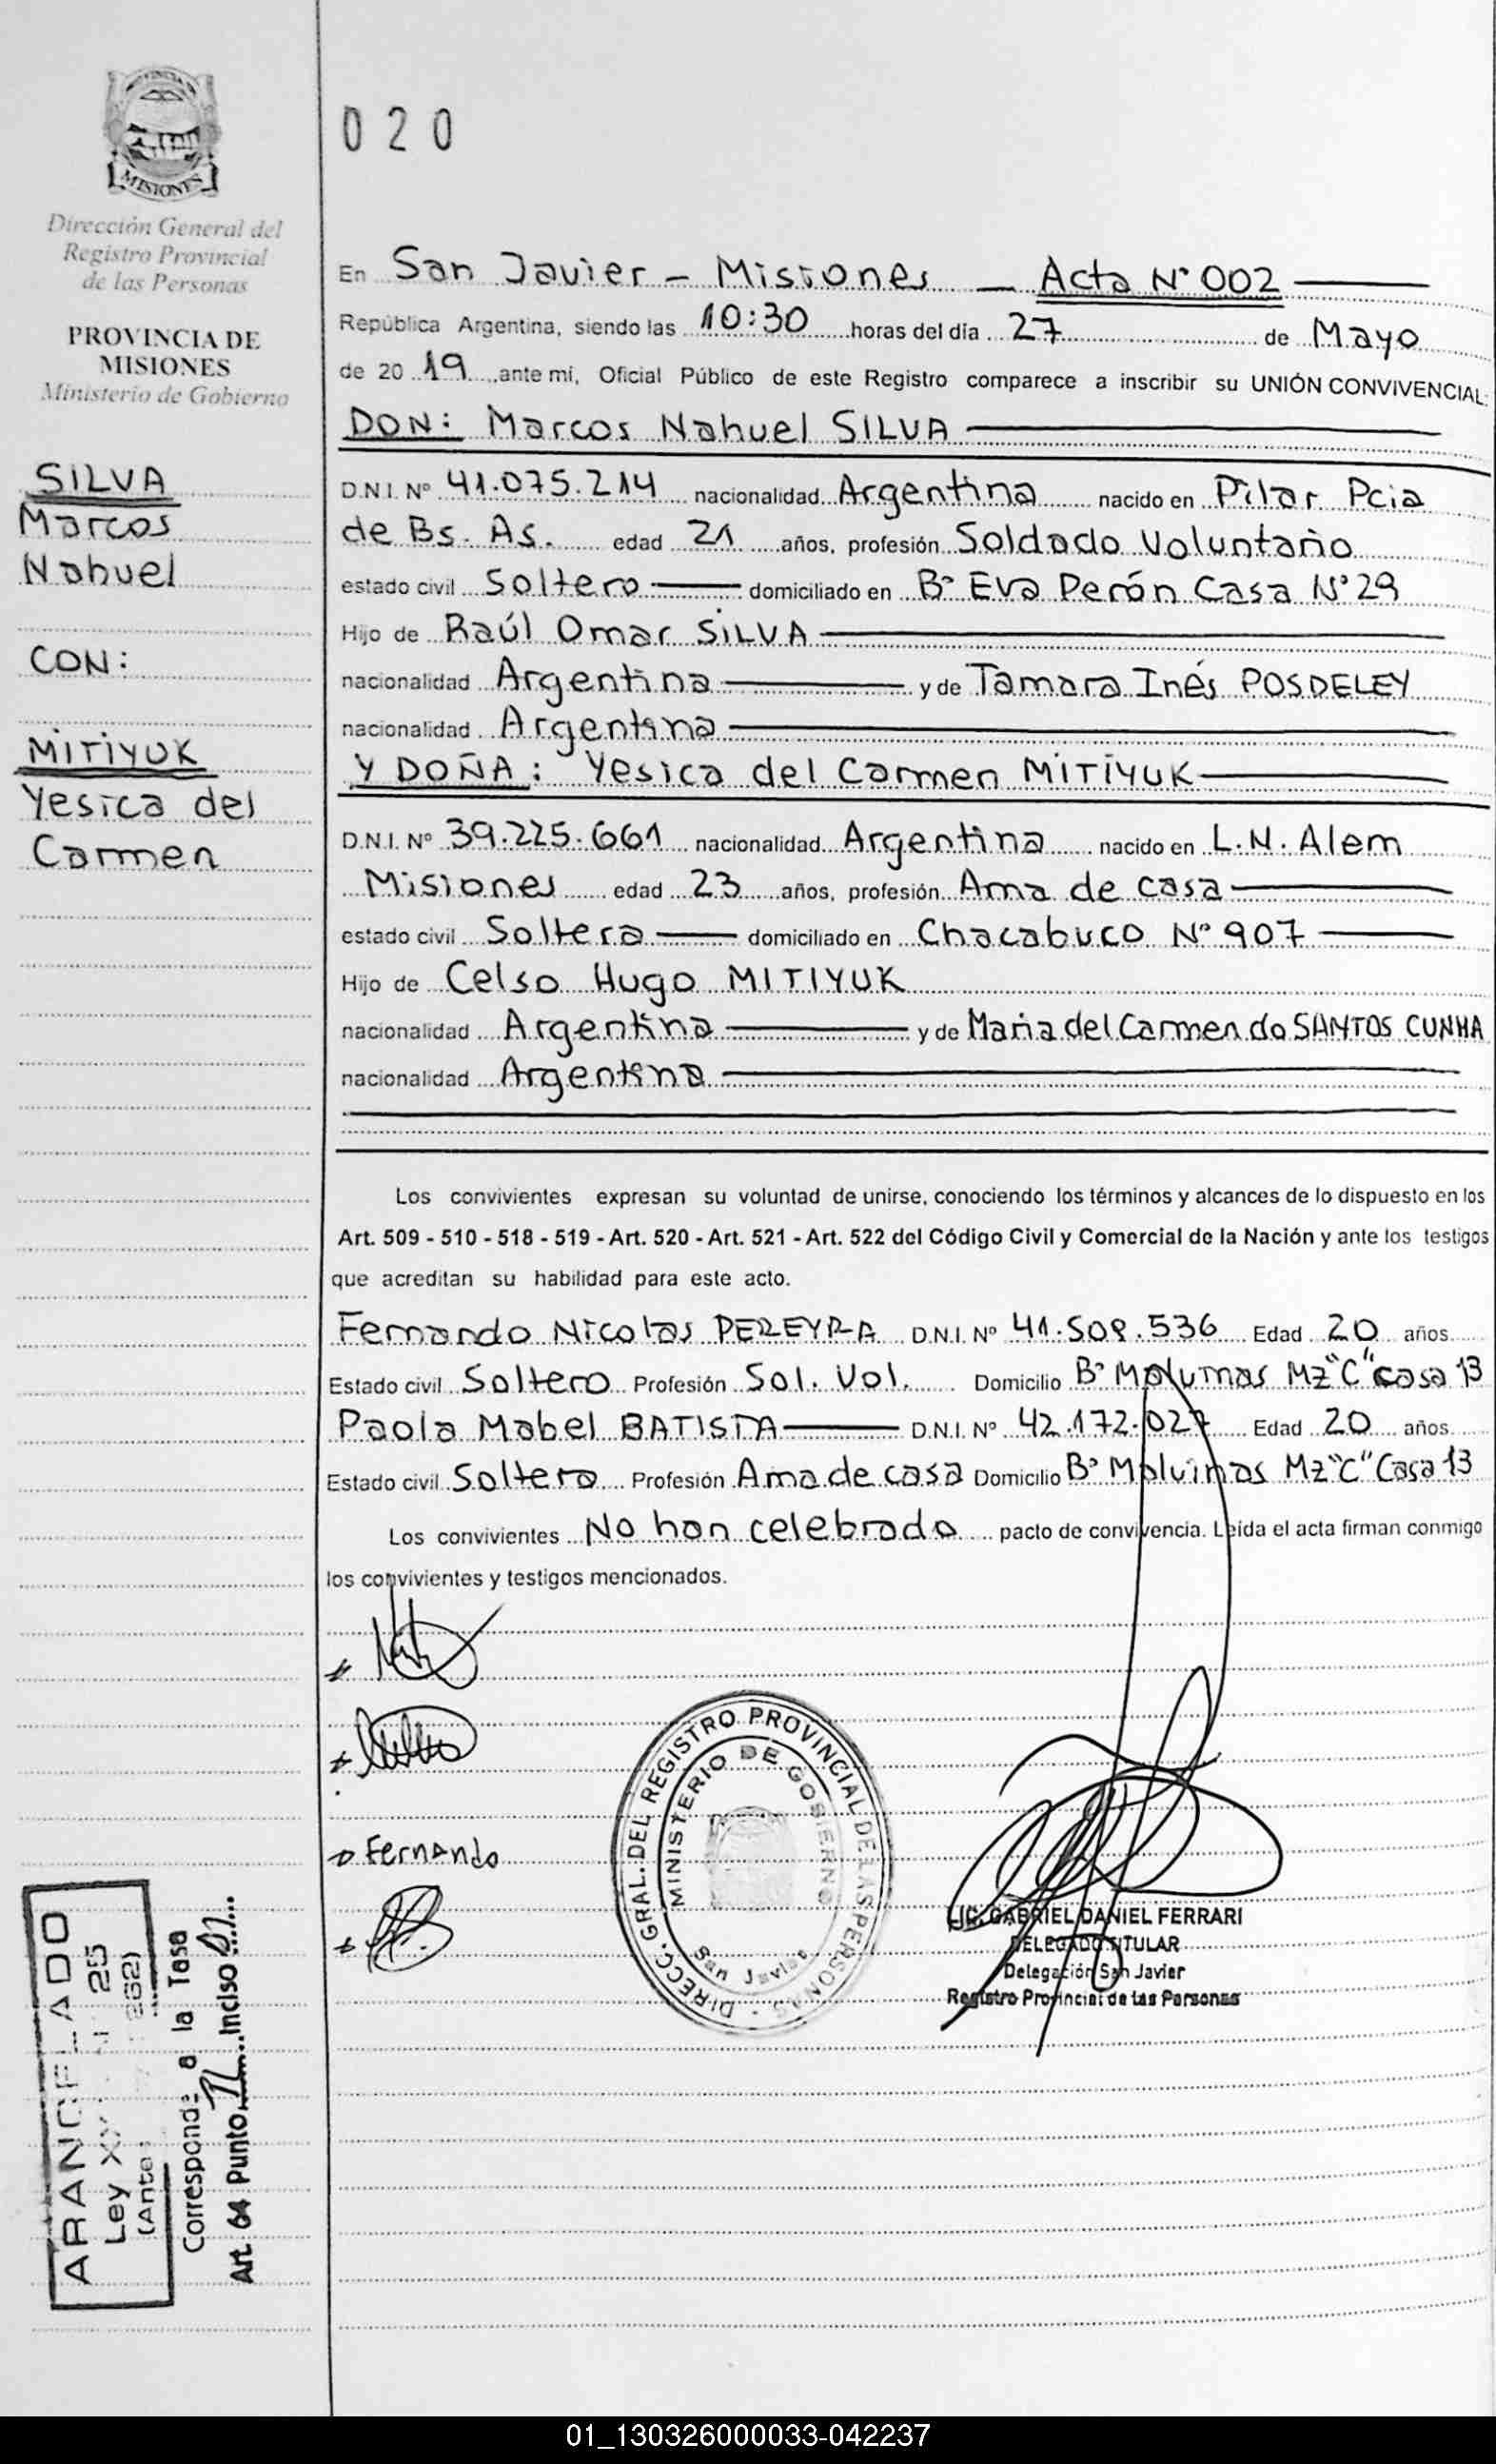 MISIONES
Dirección General del
Registro Provincial
de las Personas
PROVINCIA DE
MISIONES
Ministerio de Gobierno
SILVA
Marcos
Nahuel
CON:
MITIYUK
Yesica del
Carmen
020
En San Javier - Misiones - Acta N° 002
República Argentina, siendo las 10:30 horas del día 27 de Mayo
de 2019 ante mí, Oficial Público de este Registro comparece a inscribir su UNIÓN CONVIVENCIAL:
DON: Marcos Nahuel SILVA
D.N.I. Nº 41.075.214 nacionalidad Argentina nacido en Pilar Pcia
de Bs. As. edad 21 años, profesión Soldado Voluntario
estado civil Soltero domiciliado en B° Eva Perón Casa N° 29
Hijo de Raúl Omar SILVA
nacionalidad Argentina y de Tamara Inés POSDELEY
nacionalidad Argentina
Y DOÑA: Yesica del Carmen MITIYUK
D.N.I. Nº 39.225.661 nacionalidad Argentina nacido en L.N. Alem
Misiones edad 23 años, profesión Ama de casa
estado civil Soltera domiciliado en Chacabuco N° 907
Hijo de Celso Hugo MITIYUK
nacionalidad Argentina y de Maria del Carmen do SANTOS CUNHA
nacionalidad Argentina
Los convivientes expresan su voluntad de unirse, conociendo los términos y alcances de lo dispuesto en los
Art. 509 - 510 - 518 - 519 - Art. 520 - Art. 521 - Art. 522 del Código Civil y Comercial de la Nación y ante los testigos
que acreditan su habilidad para este acto.
Fernando Nicolas PEREYRA D.N.I. Nº 41.509.536 Edad 20 años
Estado civil Soltero Profesión Sol. Vol. Domicilio B° Malvinas Mz "C" casa 13
Paola Mabel BATISTA D.N.I. Nº 42.172.027 Edad 20 años
Estado civil Soltero Profesión Ama de casa Domicilio B° Malvinas Mz "C" Casa 13
Los convivientes No han celebrado pacto de convivencia. Leída el acta firman conmigo
los convivientes y testigos mencionados.
Fernando
DIRECC. GRAL. DEL REGISTRO PROVINCIAL DE LAS PERSONAS
MINISTERIO DE GOBIERNO
San Javier
LIC. GABRIEL DANIEL FERRARI
DELEGADO TITULAR
Delegación San Javier
Registro Provincial de las Personas
ARANCELADO
Ley
Corresponde a la Tasa
Art. 64 Punto Inciso
01_130326000033-042237